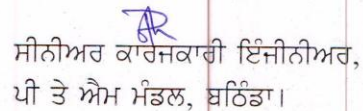 ਸੀਨੀਅਰ ਕਾਰਜਕਾਰੀ ਇੰਜੀਨੀਅਰ,
ਪੀ ਤੇ ਐਮ ਮੰਡਲ, ਬਠਿੰਡਾ।